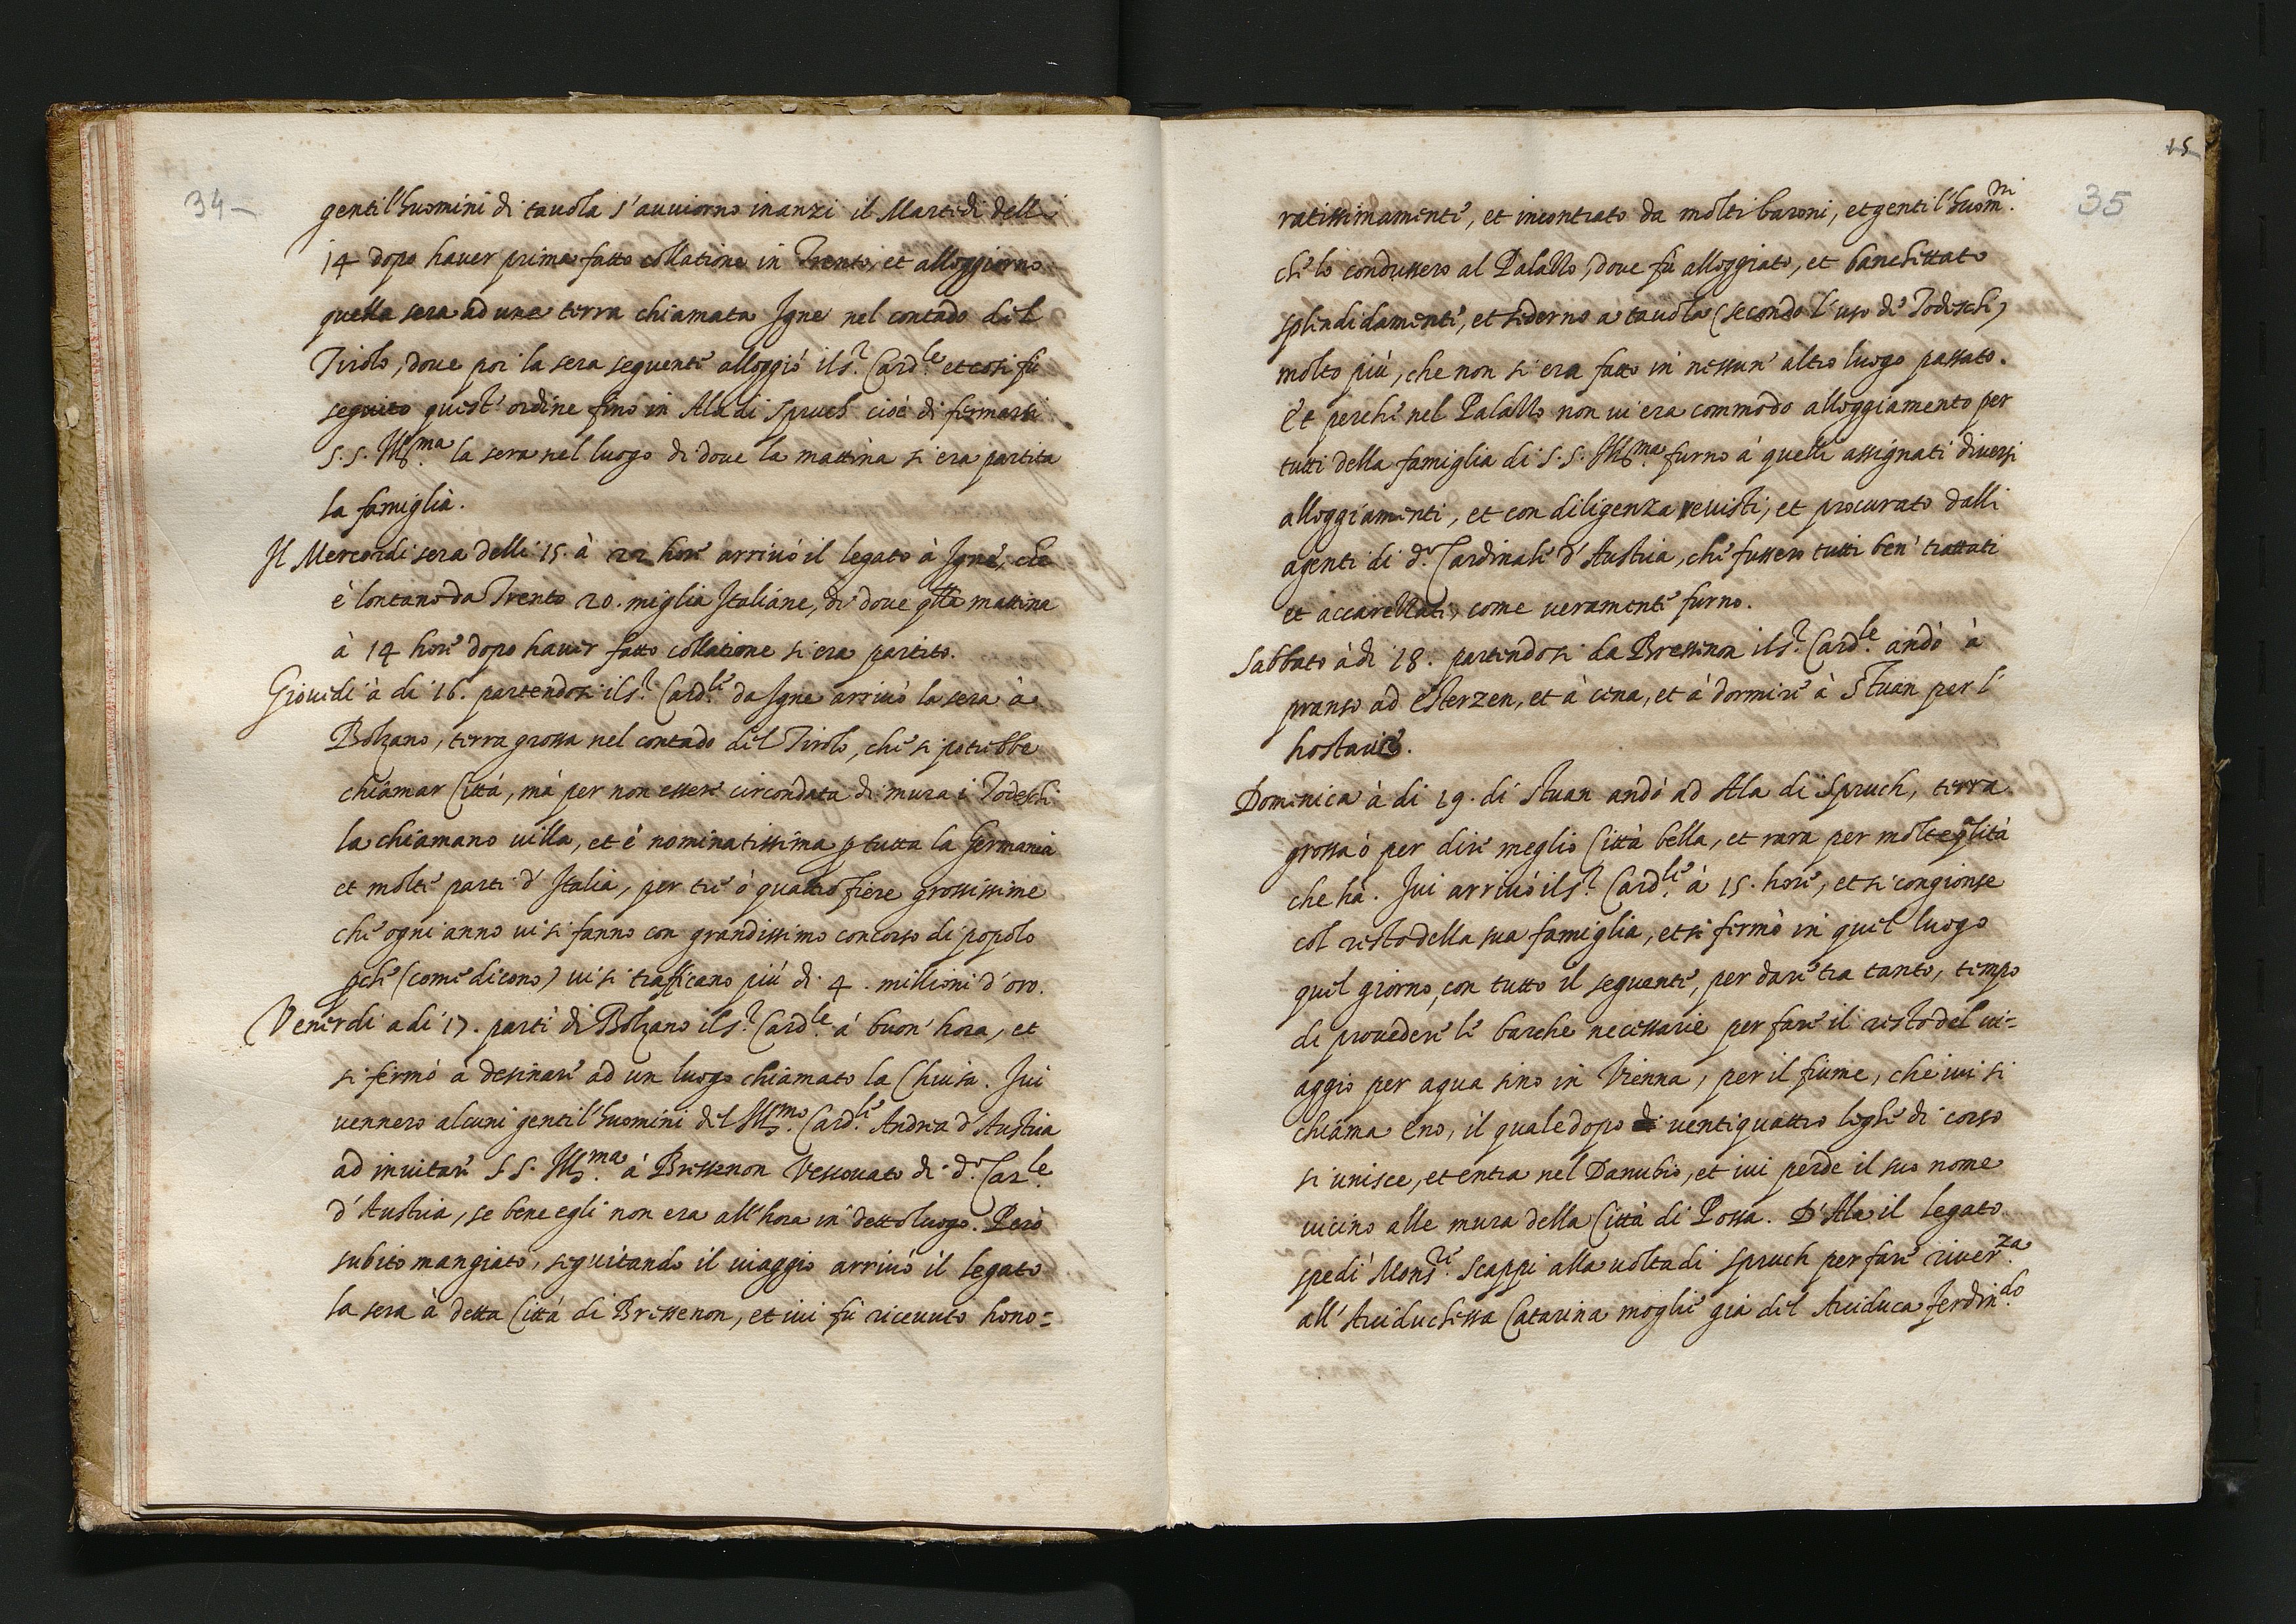 34
gentil'huomini di tauola s'auuiorno inanzi il Martedi delli
14 dopo hauer prima fatto collatione in Trento, et alloggiorno
quella sera ad una terra chiamata Igne nel contado del
Tirolo, doue poi la sera seguente alloggiò il s.r Card.le et cosi fù
seguito quest' ordine fino in Ala di Spruch cioè di fermarsi
S. S. Ill.ma la sera nel luogo di doue la mattina si era partita
la famiglia.
Il Mercordi sera delli 15. à 22 hore arriuò il legato à Igne, che
è lontano da Trento 20. miglia Italiane, di doue q.lla mattina
à 14 hore dopo hauer fatto collatione si era partito.
Giouedi à di 16. partendosi il s.r Card.le da Igne arriuò la sera à
Bolzano, terra grossa nel contado del Tirolo, che si potrebbe
chiamar Città, mà per non essere circondata di mura i Todeschi
la chiamano uilla, et è nominatissima p tutta la Germania
et molte parti d'Italia, per tre ò quattro fiere grossissime
che ogni anno ui si fanno con grandissimo concorso di popolo
pche (come dicono) ui si trafficano più di 4. millioni d'oro.
Venerdi a di 17. partì di Bolzano il s.r Card.le à buon' hora, et
si fermò à desinare ad un luogo chiamato la Chiusa. Iui
uennero alcuni gentil'huomini del Ill.mo Card.le Andrea d'Austria
ad inuitare S S. Ill.ma à Bressenon Vescouato di d.o Car.le
d'Austria, se bene egli non era all'hora in detto luogo. Però
subito mangiato, seguitando il uiaggio arriuò il legato
la sera à detta Città di Bressenon, et iui fù riceuuto hono=
15
35
ratissimamente, et incontrato da molti baroni, et gentil'huom.ni
che lo condussero al Palazzo, doue fù alloggiato, et banchettato
splendidamente, et sederno a tauola (secondo l'uso de Todeschi)
molto più, che non si era fatto in nessun' altro luogo passato.
Et perche nel Palazzo non ui era commodo alloggiamento per
tutti della famiglia di S. S. Ill.ma furno à quelli assignati diuersi
alloggiamenti, et con diligenza reuisti, et procurato dalli
agenti di d.o Cardinale d'Austria, che fussero tutti ben' trattati
et accarezzati, come ueramente furno.
Sabbato à di 18. partendosi da Bressenon il s.r Card.le andò à
pranso ad Esterzen, et à cena, et à dormire à Stuan per l'
hostarie.
Dominica à di 19. di Stuan andò ad Ala di Spruch, terra
grossa ò per dire meglio Città bella, et rara per molte qlità
che hà. Iui arriuò il s.r Card.le à 15. hore, et si congionse
col resto della sua famiglia, et si fermò in quel luogo
quel giorno, con tutto il seguente, per dare tra tanto, tempo
di prouedere le barche necessarie per fare il resto del ui=
aggio per aqua sino in Vienna, per il fiume, che iui si
chiama Eno, il quale dopo uentiquattro leghe di corso
si unisce, et entra nel Danubio, et iui perde il suo nome
uicino alle mura della Città di Possa. D'Ala il legato
spedì Mons.re Scappi alla uolta di Spruch per fare riuer.za
all' Arciduchessa Catarina moglie già del Arciduca Ferdin.do